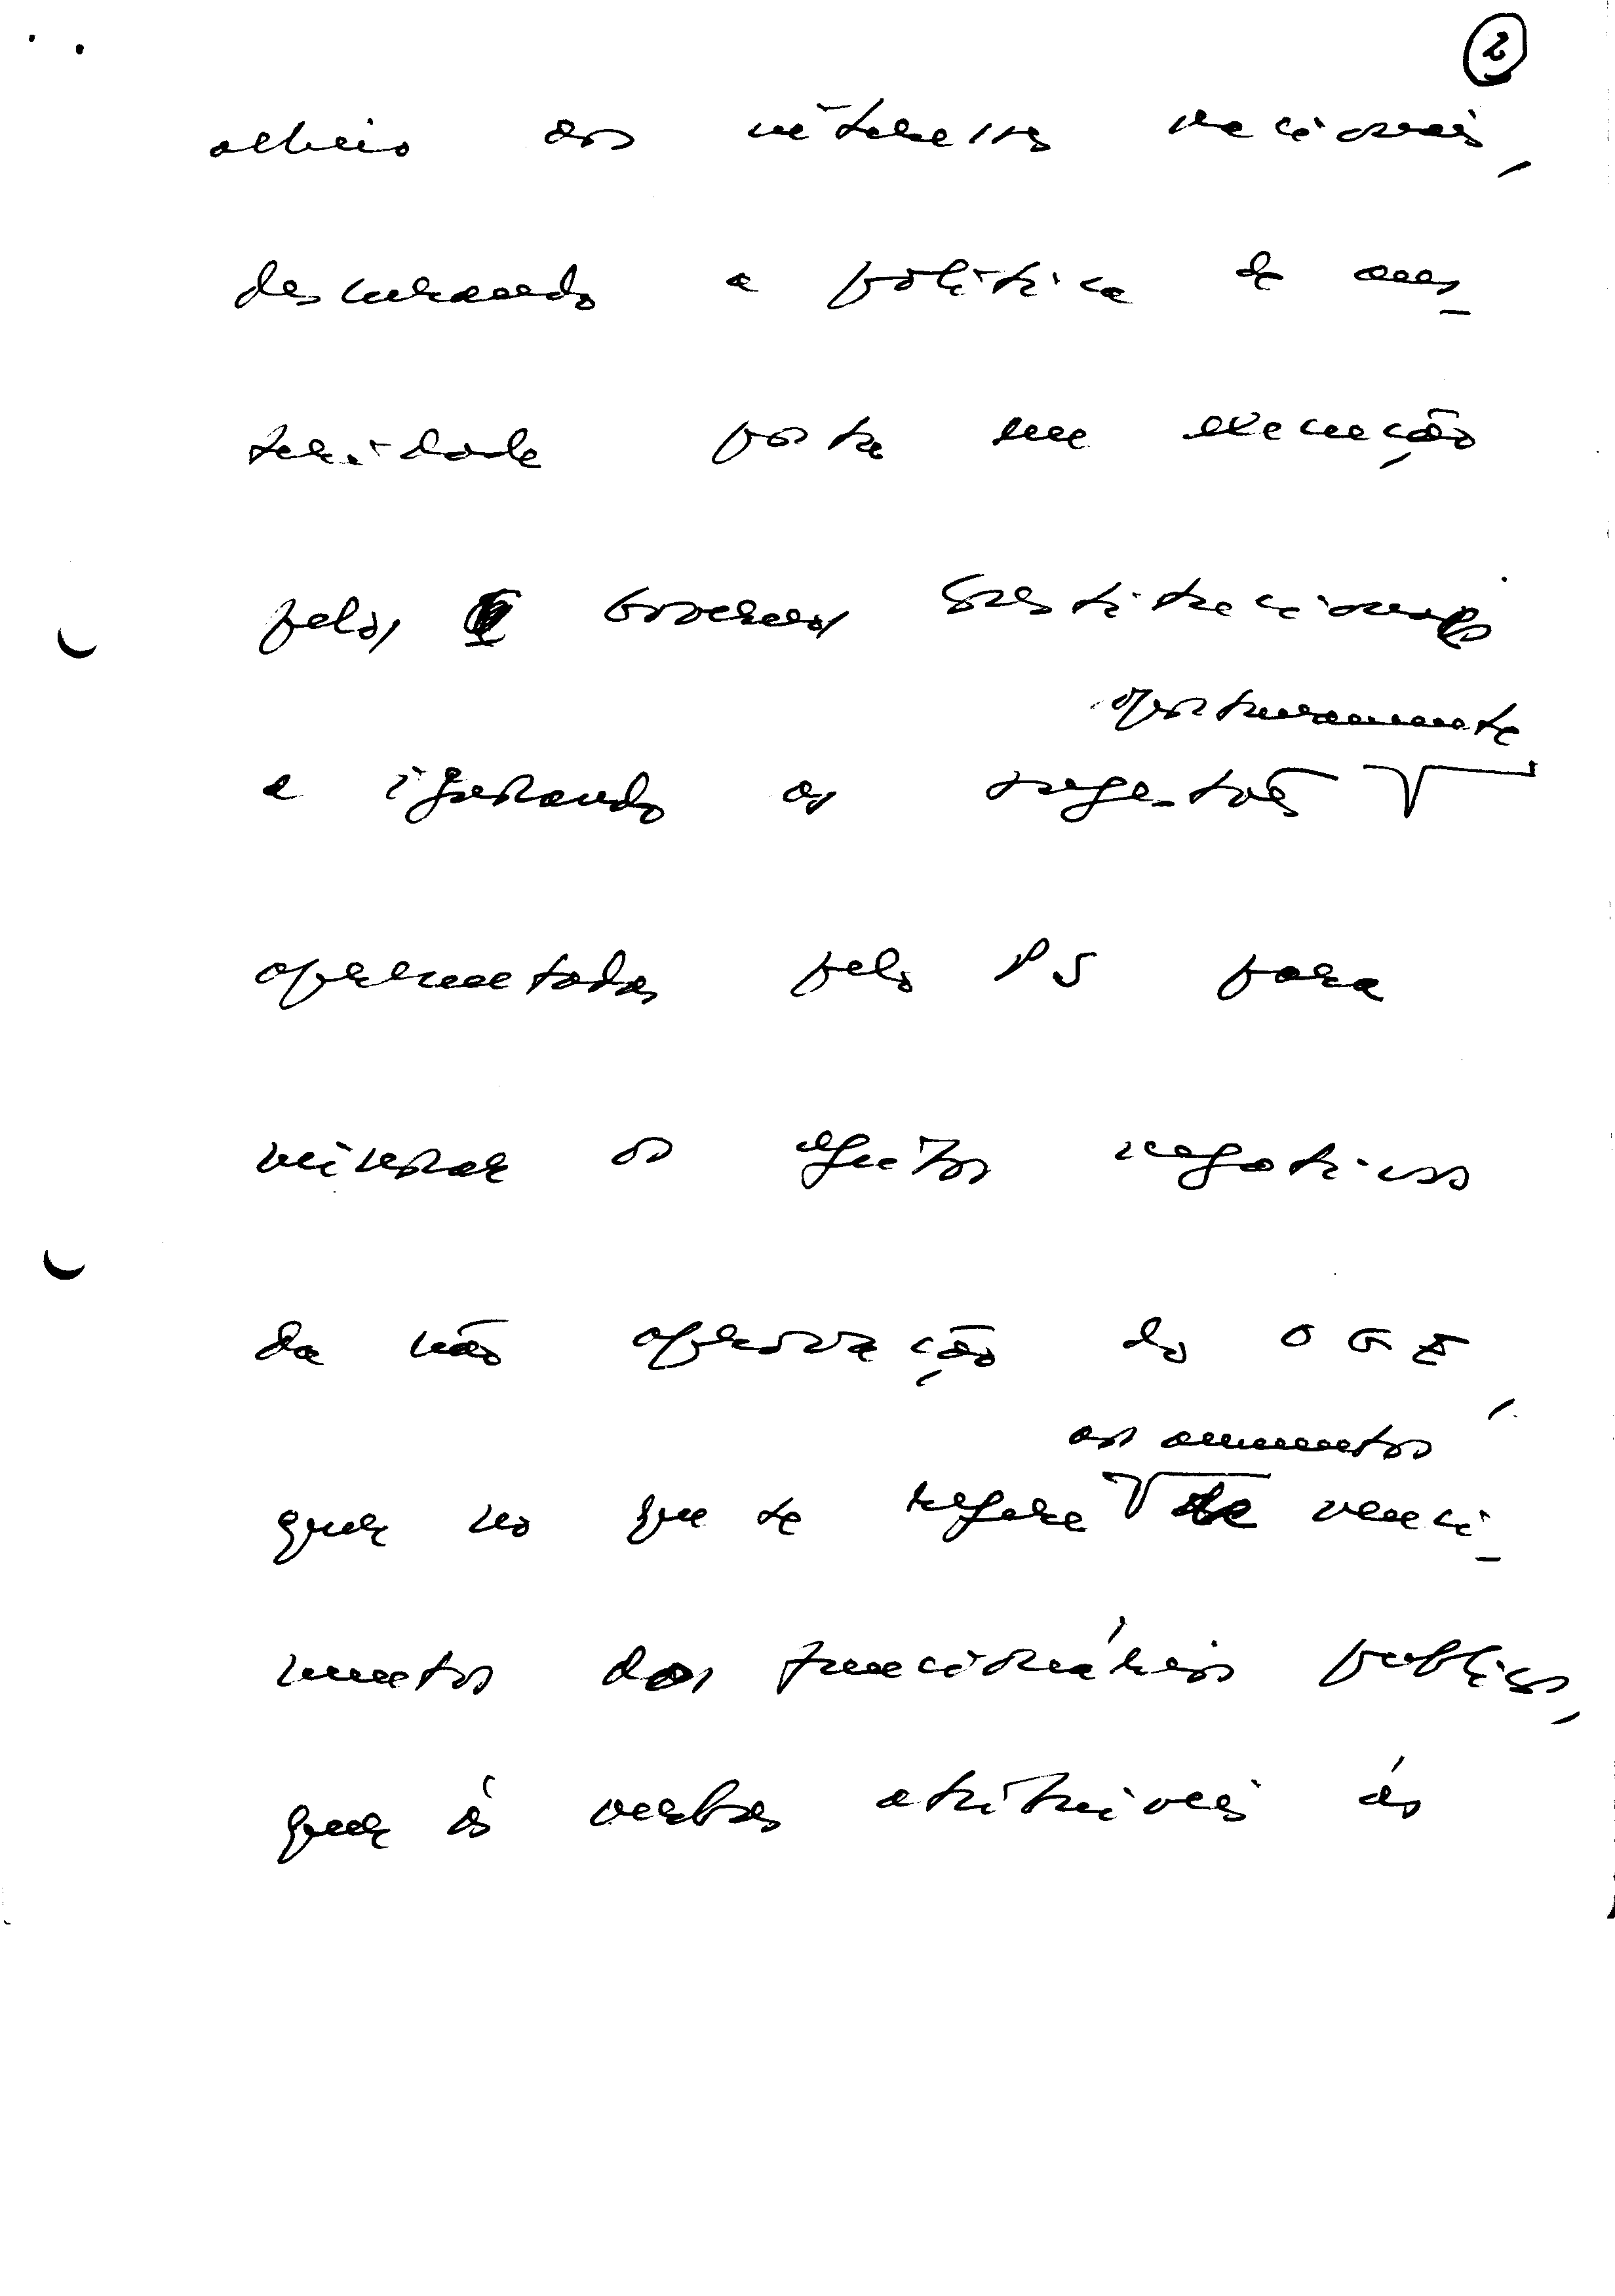 2
alheio aos interesses nacionais,
descurando a política de aus-
teridade posta em execução
pelos Governos Constitucionais
oportunamente
e ignorando as sugestões
apresentadas pelo PS para
minorar os efeitos negativos
da não aprovação do OGE,
aos aumentos
quer no que se refere de venci-
mentos dos funcionários publicos,
quer às verbas atribuíveis às